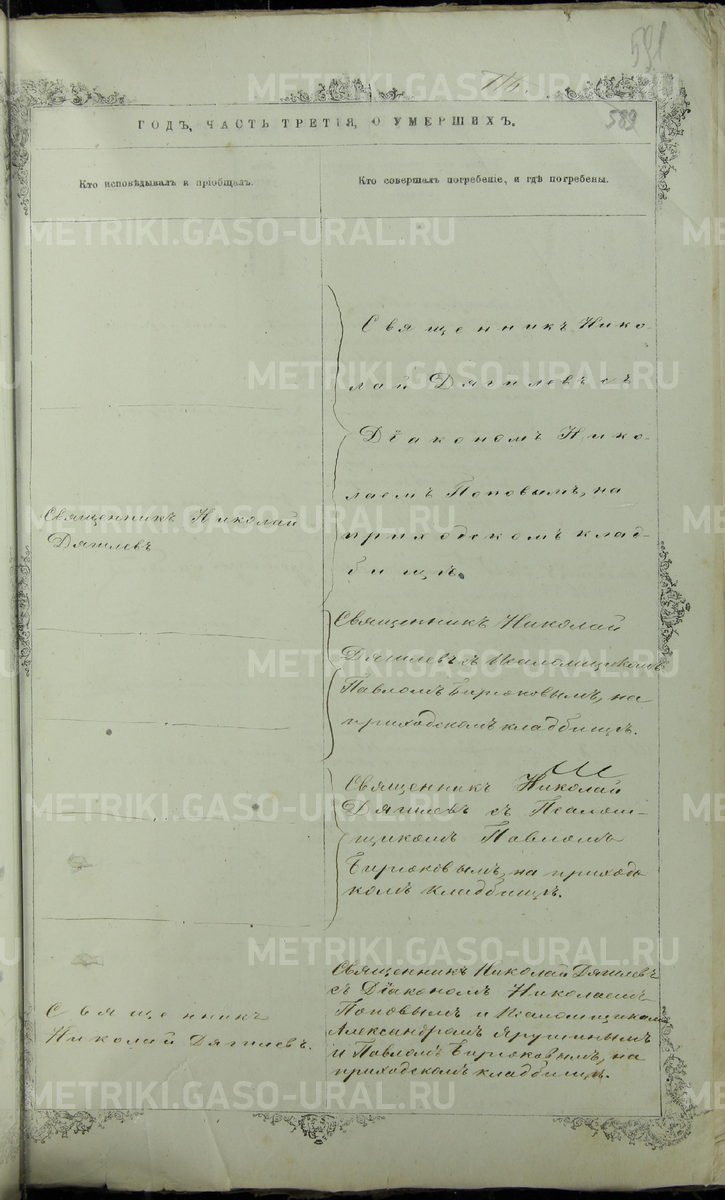 591
589
ГОДЪ, ЧАСТЬ ТРЕТІЯ, О УМЕРШИХЪ.
Кто исповѣдывалъ и пріобщалъ.
Кто совершалъ погребеніе, и гдѣ погребены.
Священникъ Нико-
лай Дягилевъ съ
Діакономъ Нико-
лаемъ Поповымъ, на
приходскомъ клад-
бищѣ.
Священникъ Николай
Дягилевъ
Священникъ Николай
Дягилевъ съ Псаломщикомъ
Павломъ Бирюковымъ, на
приходскомъ кладбищѣ.
Священникъ Николай
Дягилевъ съ Псалом-
щикомъ Павломъ
Бирюковымъ, на приходс
комъ кладбищѣ.
Священникъ
Николай Дягилевъ.
Священникъ Николай Дягилевъ
съ Діакономъ Николаемъ
Поповымъ и Псаломщиками
Александромъ Ярушинымъ
и Павломъ Бирюковымъ, на
приходскомъ кладбищѣ.
METRIKI.GASO-URAL.RU